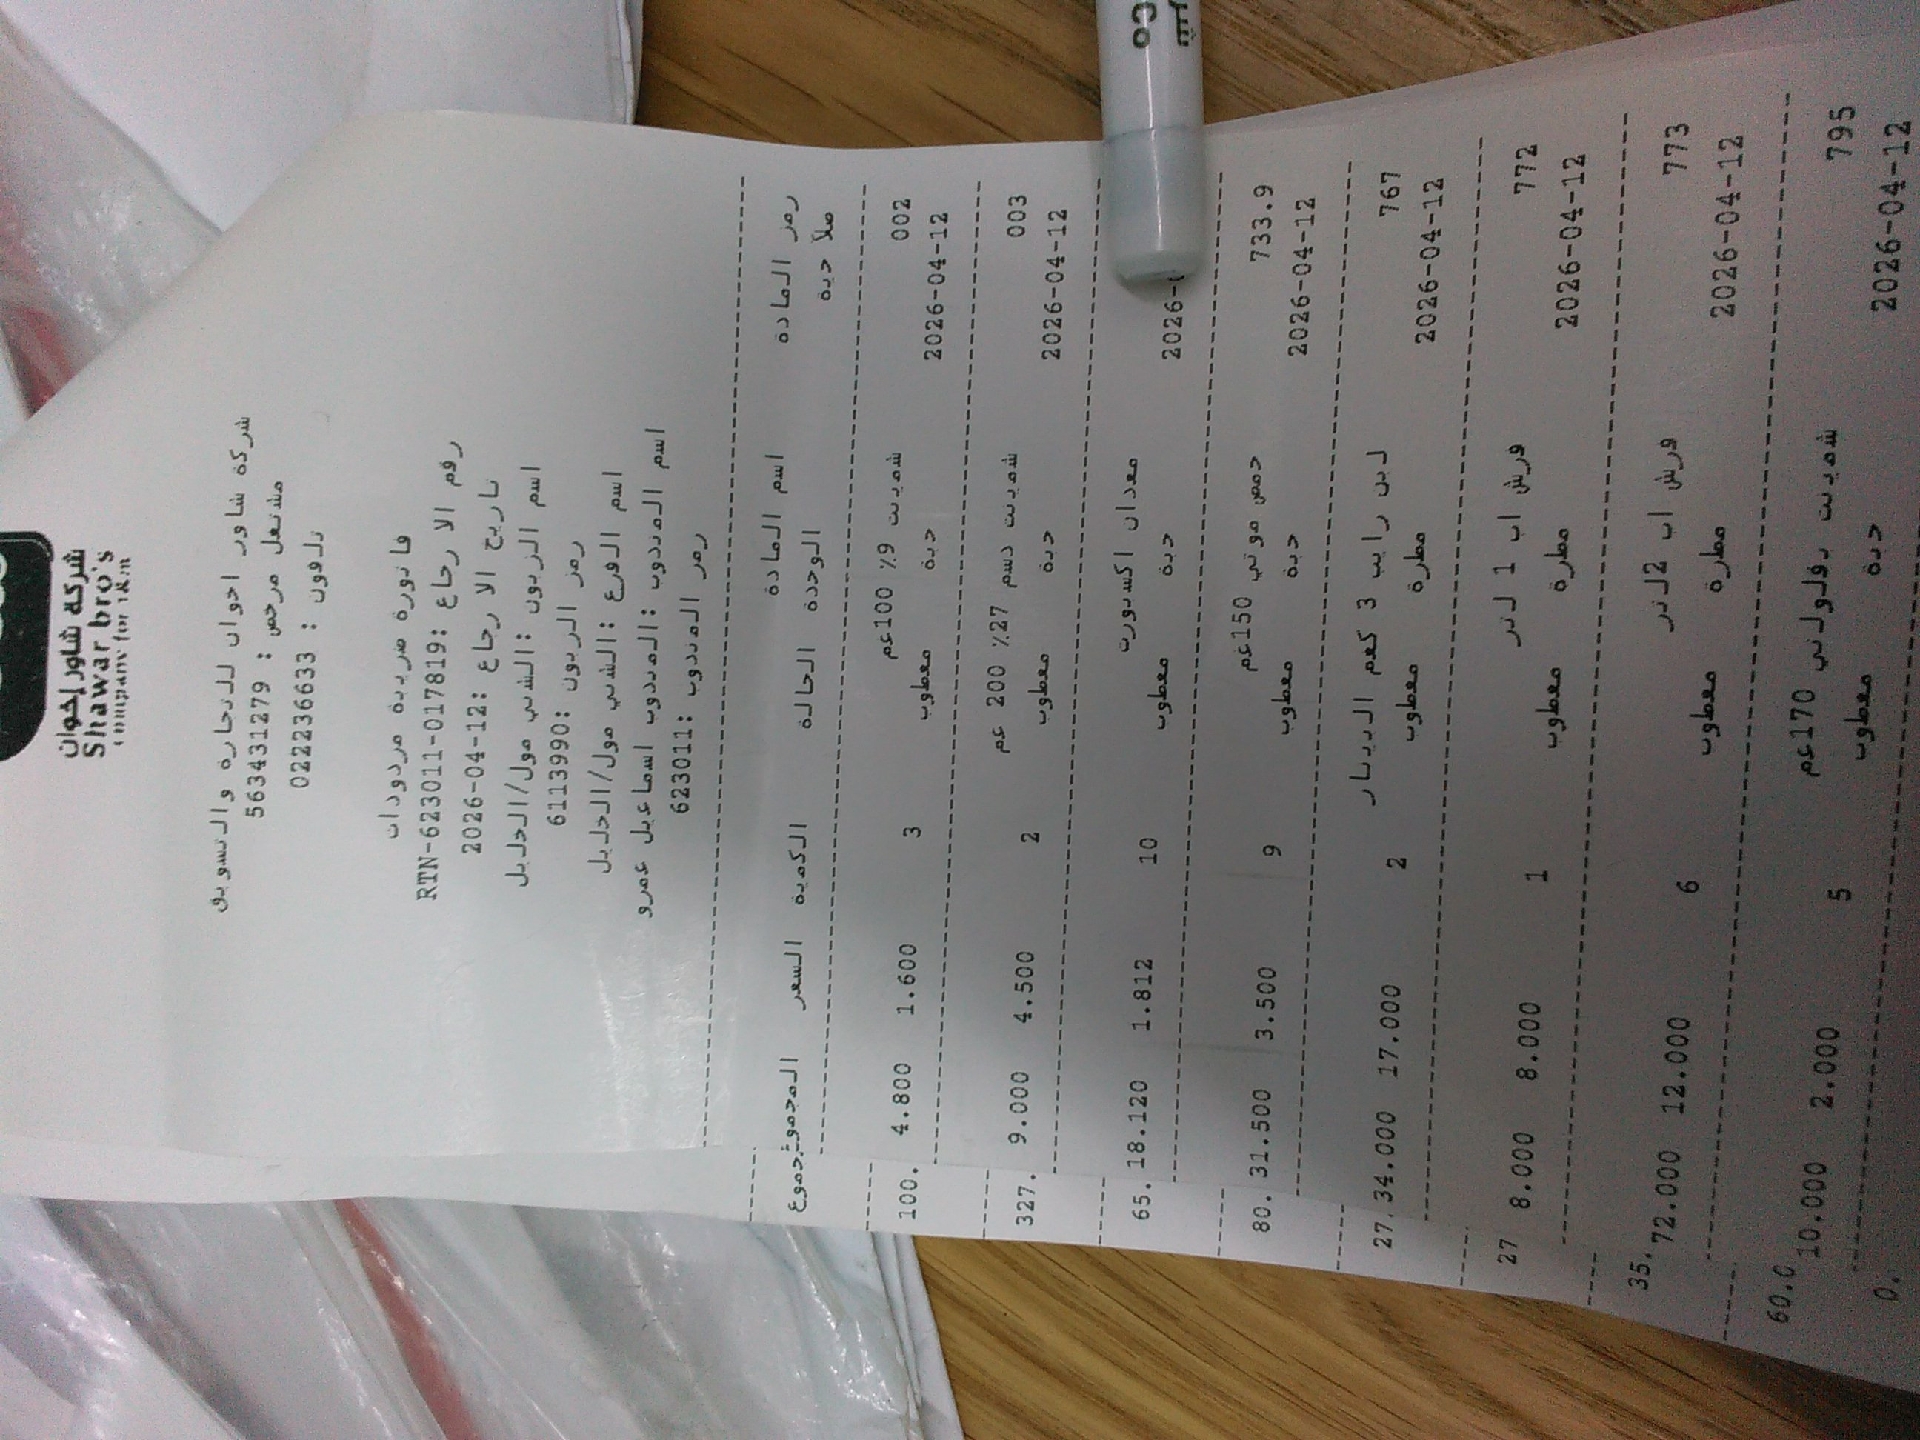 شركة شاور إخوان
Shawar bro's
company for t&m
شركة شاور اخوان للتجارة والتسويق
مشتغل مرخص : 563431279
تلفون : 022236633
فاتورة ضريبة مردودات
رقم الارجاع :RTN-623011-017819
تاريخ الارجاع :2026-04-12
اسم الزبون :الشني مول/الخليل
رمز الزبون :6113990
اسم الفرع :الشني مول/الخليل
اسم المندوب :المندوب اسماعيل عمرو
رمز المندوب :623011
رمز المادة اسم المادة الكمية السعر المجموع
صلاحية الوحدة الحالة
002 شمينت 9% 100غم 3 1.600 4.800
2026-04-12 حبة معطوب
003 شمينت دسم 27% 200 غم 2 4.500 9.000
2026-04-12 حبة معطوب
معدان اكسبورت 10 1.812 18.120
2026- حبة معطوب
733.9 حمص موتي 150غم 9 3.500 31.500
2026-04-12 حبة معطوب
767 لبن رايب 3 كغم الدينار 2 17.000 34.000
2026-04-12 مطرة معطوب
772 فرش اب 1 لتر 1 8.000 8.000
2026-04-12 مطرة معطوب
773 فرش اب 2لتر 6 12.000 72.000
2026-04-12 مطرة معطوب
795 شمينت بلولاني 170غم 5 2.000 10.000
2026-04-12 حبة معطوب
جموع
100.
327.
65.
80.
27.
27
35.
60.0
0.